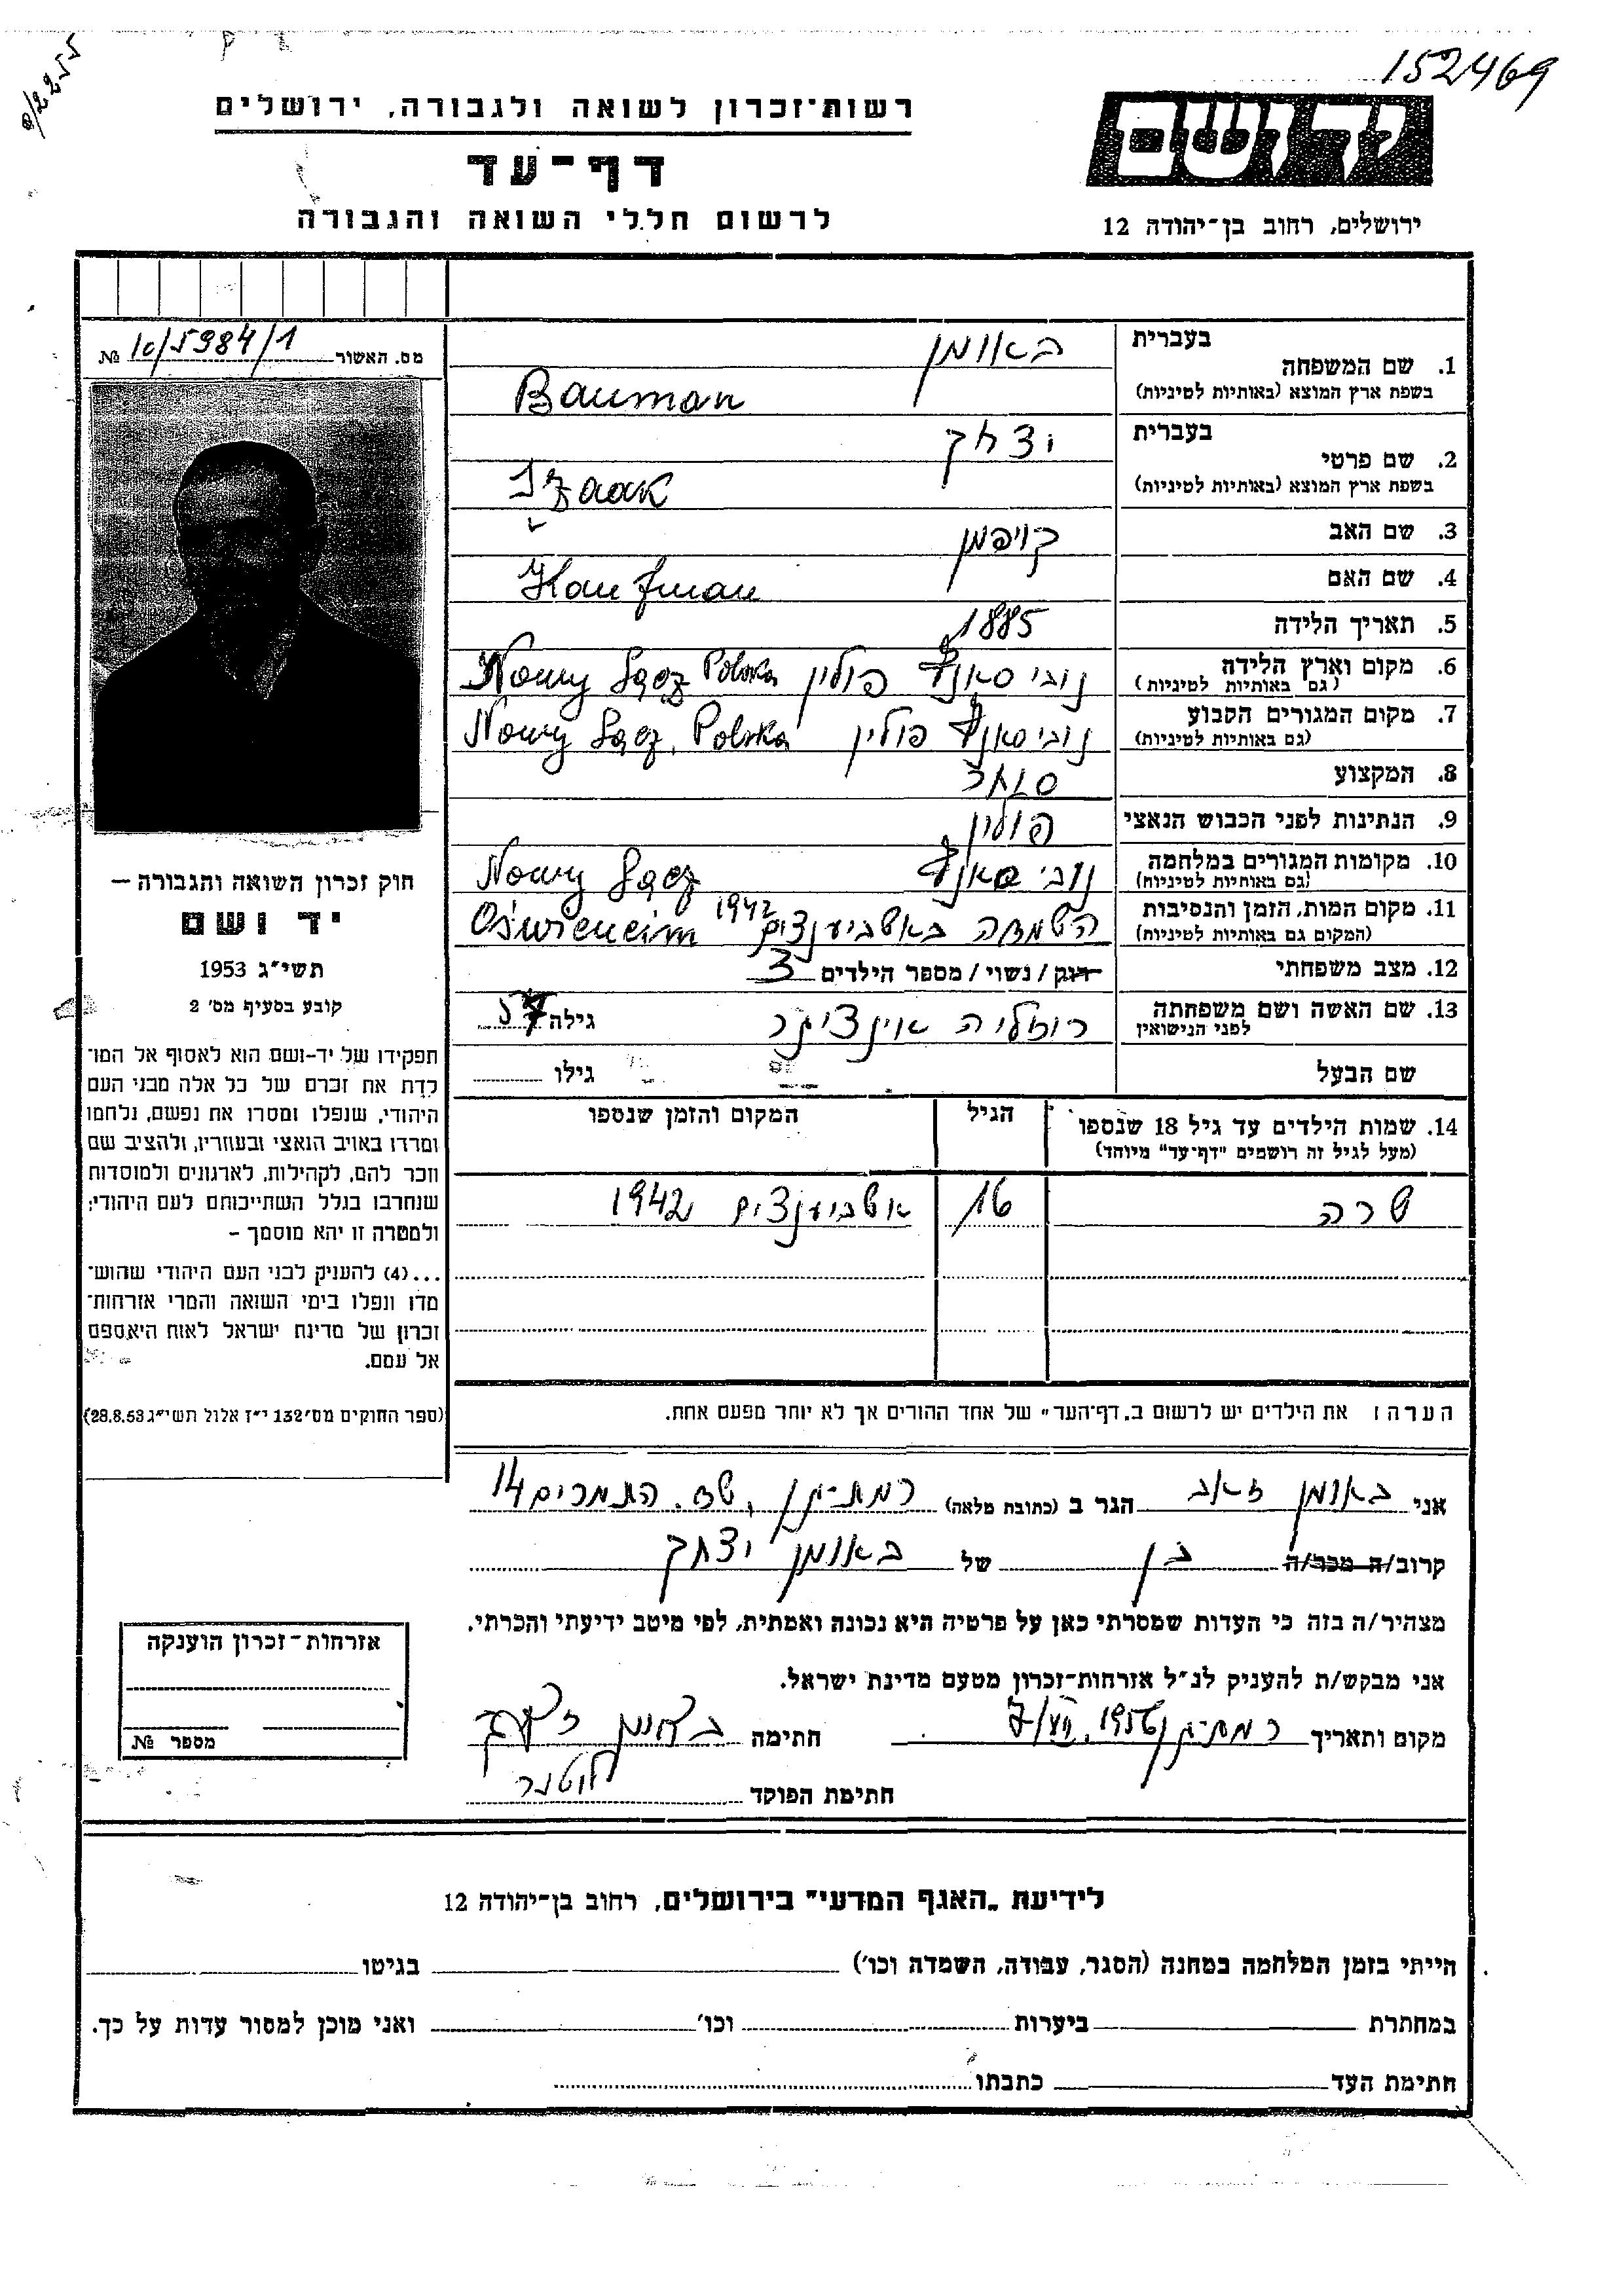 152469
רשות־זכרון לשואה ולגבורה, ירושלים
דף־עד
לרשום חללי השואה והגבורה
יד ושם
ירושלים, רחוב בן־יהודה 12
מס. האשור № 5984/1
1. שם המשפחה
בעברית באומן
בשפת ארץ המוצא (באותיות לטיניות) Bauman
2. שם פרטי
בעברית יצחק
בשפת ארץ המוצא (באותיות לטיניות) Izaak
3. שם האב קויפמן
4. שם האם Kaufman
5. תאריך הלידה 1885
6. מקום וארץ הלידה (גם באותיות לטיניות) נובי סאנץ פולין Nowy Sącz Polska
7. מקום המגורים הקבוע (גם באותיות לטיניות) נובי סאנץ פולין Nowy Sącz, Polska
8. המקצוע סוחר
9. הנתינות לפני הכבוש הנאצי פולין
10. מקומות המגורים במלחמה (גם באותיות לטיניות) נובי סאנץ Nowy Sącz
11. מקום המות, הזמן והנסיבות (המקום גם באותיות לטיניות) השמדה באשביענצים 1942 Oświeneim
12. מצב משפחתי רווק / נשוי / מספר הילדים 3
13. שם האשה ושם משפחתה לפני הנישואין רוזליה אינציגר גילה 57
שם הבעל גילו
14. שמות הילדים עד גיל 18 שנספו (מעל לגיל זה רושמים "דף־עד" מיוחד) הגיל המקום והזמן שנספו
שרה 16 אשביענצים 1942
הערה: את הילדים יש לרשום ב„דף־העד" של אחד ההורים אך לא יותר מפעם אחת.
חוק זכרון השואה והגבורה —
יד ושם
תשי״ג 1953
קובע בסעיף מס׳ 2
תפקידו של יד־ושם הוא לאסוף אל המו־
לדת את זכרם של כל אלה מבני העם
היהודי, שנפלו ומסרו את נפשם, נלחמו
ומרדו באויב הנאצי ובעוזריו, ולהציב שם
וזכר להם, לקהילות, לארגונים ולמוסדות
שנחרבו בגלל השתייכותם לעם היהודי;
ולמטרה זו יהא מוסמך –
...(4) להעניק לבני העם היהודי שהוש־
מדו ונפלו בימי השואה והמרי אזרחות־
זכרון של מדינת ישראל לאות היאספם
אל עמם.
(ספר החוקים מס׳ 132 י״ז אלול תשי״ג 28.8.53)
אני באומן זאב הגר ב (כתובת מלאה) רמת־גן, שד. התמרים 14
קרוב/ה מכר/ה בן של באומן יצחק
מצהיר/ה בזה כי העדות שמסרתי כאן על פרטיה היא נכונה ואמתית, לפי מיטב ידיעתי והכרתי.
אני מבקש/ת להעניק לנ״ל אזרחות־זכרון מטעם מדינת ישראל.
מקום ותאריך רמת־גן 7/VII 1956 חתימה באומן זאב
חתימת הפוקד
אזרחות־זכרון הוענקה
מספר №
לידיעת „האגף המדעי" בירושלים, רחוב בן־יהודה 12
הייתי בזמן המלחמה במחנה (הסגר, עבודה, השמדה וכו׳) בגיטו
במחתרת ביערות וכו׳ ואני מוכן למסור עדות על כך.
חתימת העד כתבתו